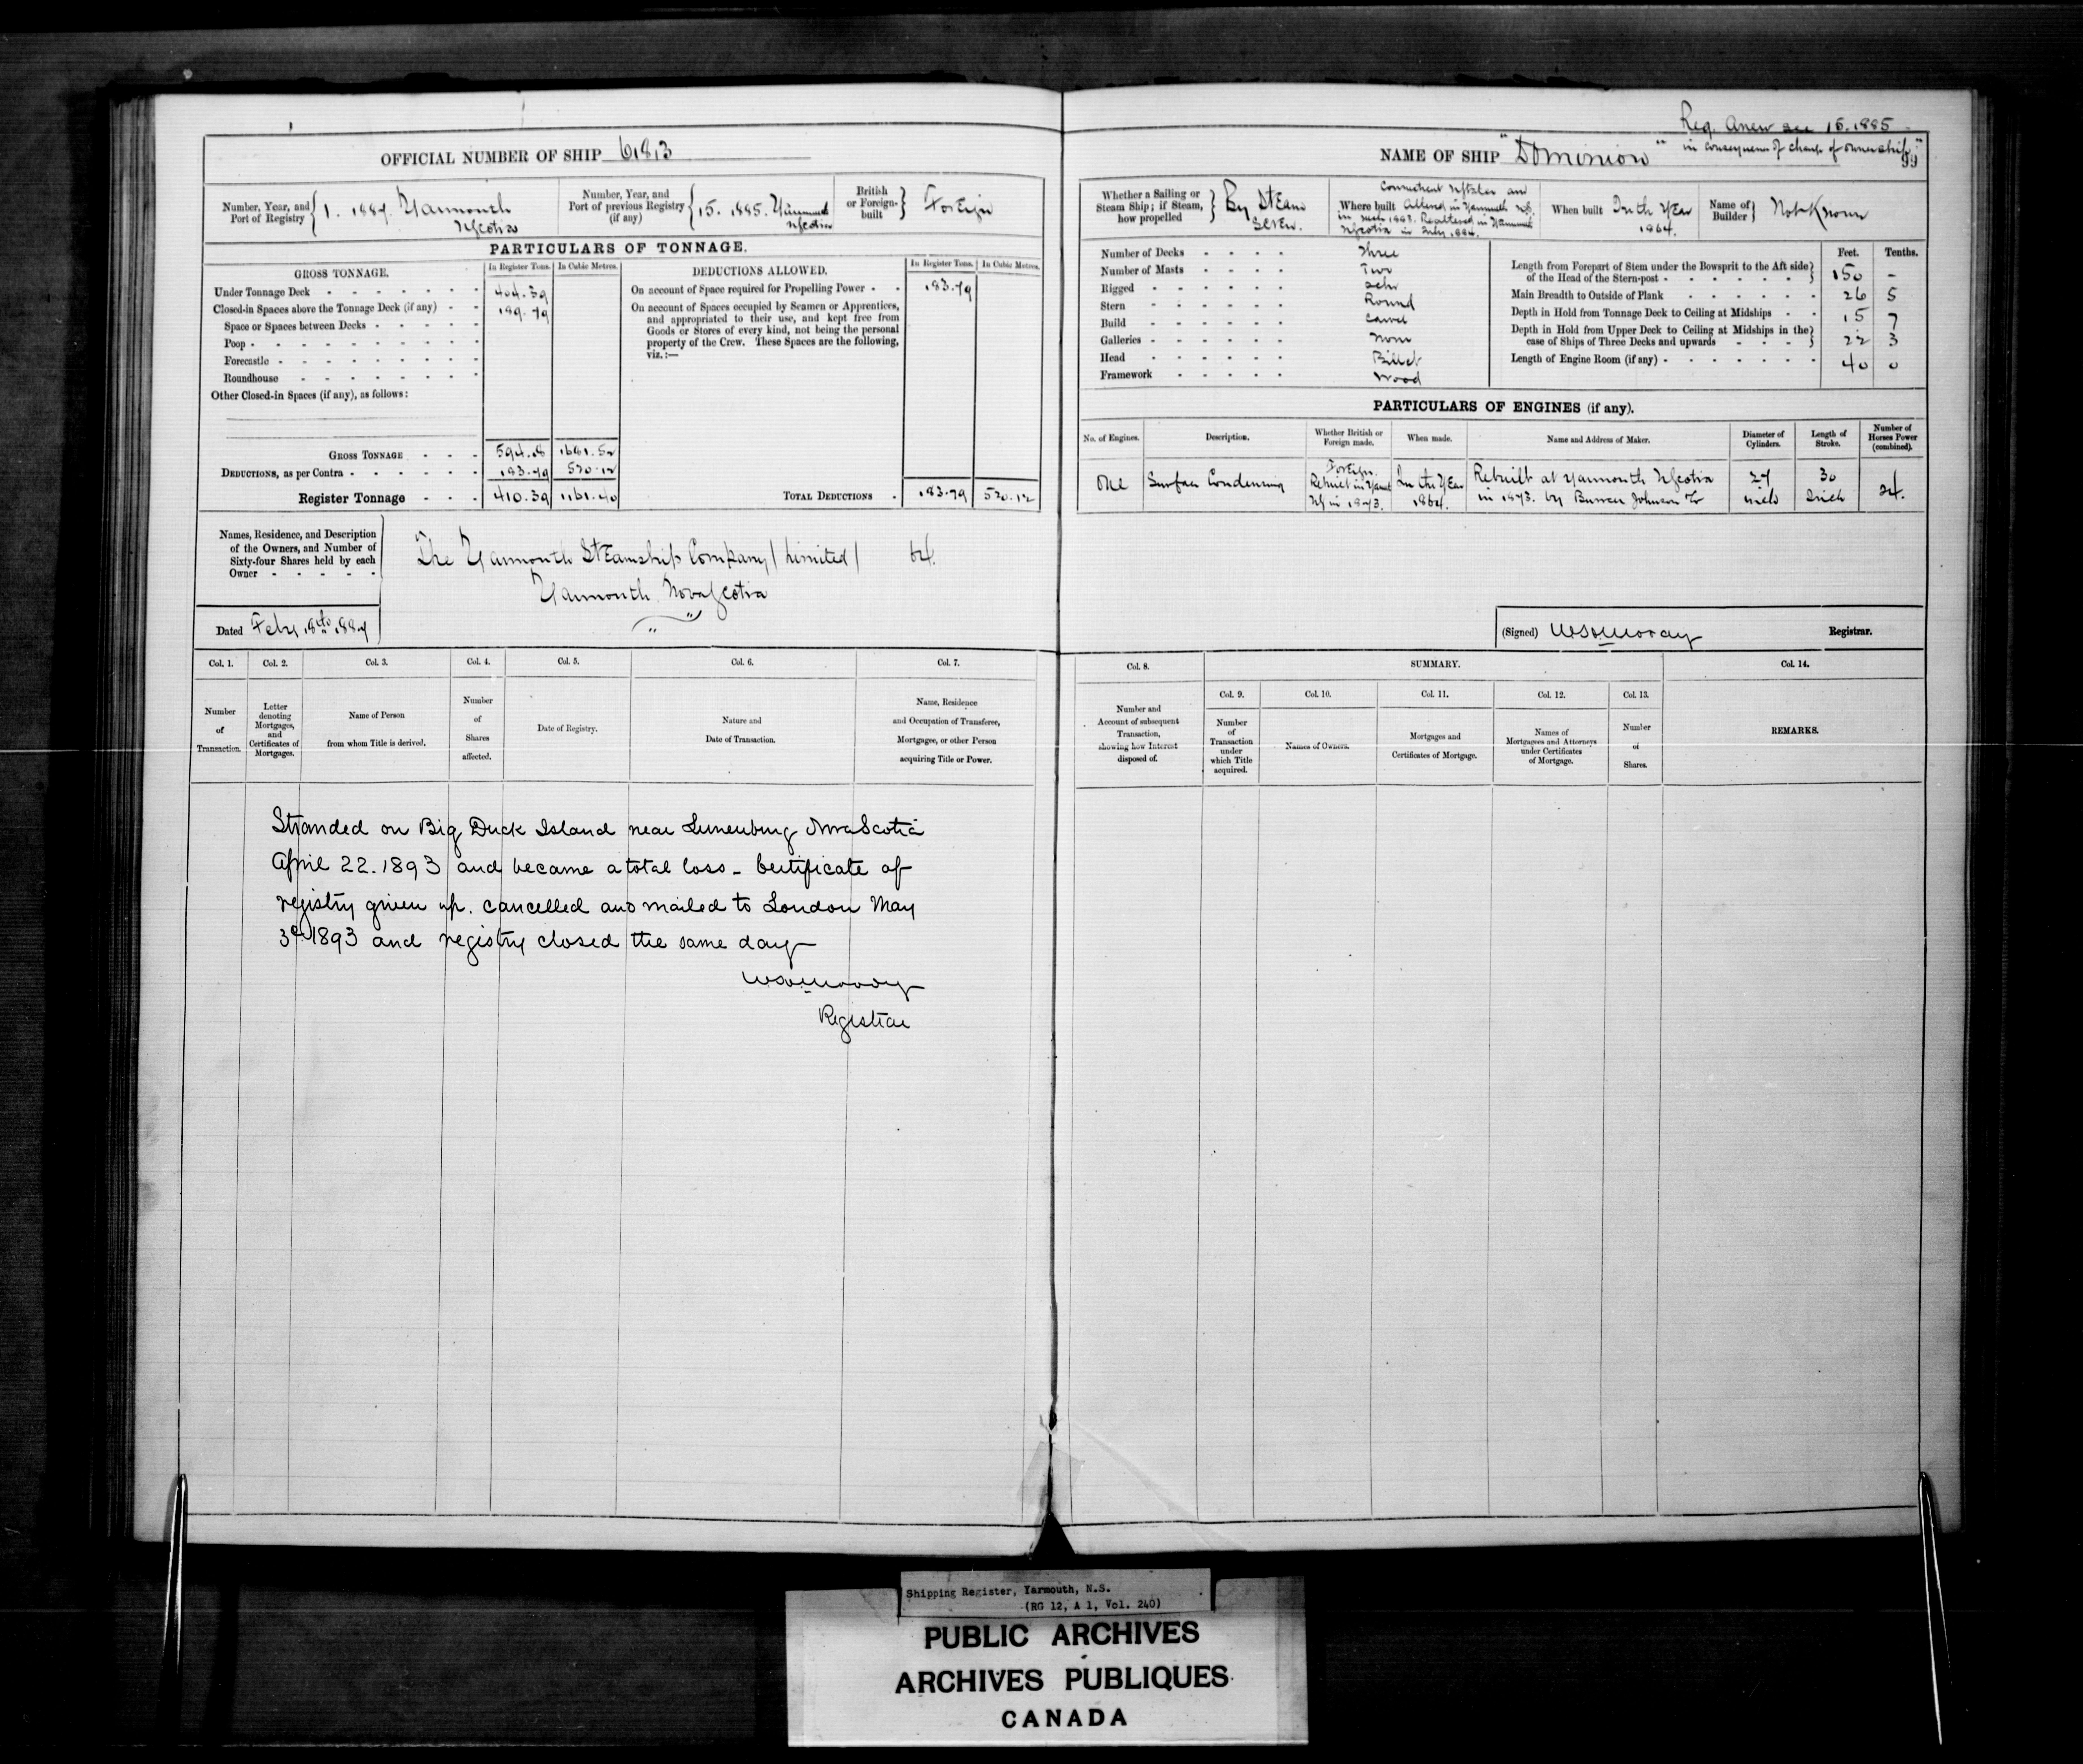 Reg. Anew see 15.1885
OFFICIAL NUMBER OF SHIP 61813
NAME OF SHIP "Dominion" in consequence of change of ownership
99
Number, Year, and Port of Registry 1. 1887. Yarmouth NScotia
Number, Year, and Port of previous Registry (if any) 15. 1885. Yarmouth NScotia
British or Foreign-built Foreign
Whether a Sailing or Steam Ship; if Steam, how propelled By Steam Screw.
Where built Connecticut UStates and Altered in Yarmouth NS. in 1883. Realtered in Yarmouth NScotia in July 1884.
When built In the Year 1864.
Name of Builder Not Known
PARTICULARS OF TONNAGE.
GROSS TONNAGE. In Register Tons. In Cubic Metres.
DEDUCTIONS ALLOWED. In Register Tons. In Cubic Metres.
Under Tonnage Deck 404.39
Closed-in Spaces above the Tonnage Deck (if any) 189.79
Space or Spaces between Decks
Poop
Forecastle
Roundhouse
Other Closed-in Spaces (if any), as follows:
On account of Space required for Propelling Power 183.79
On account of Spaces occupied by Seamen or Apprentices,
and appropriated to their use, and kept free from
Goods or Stores of every kind, not being the personal
property of the Crew. These Spaces are the following,
viz.:—
GROSS TONNAGE 594.18
DEDUCTIONS, as per Contra 183.79 520.12
Register Tonnage 410.39 1161.40
TOTAL DEDUCTIONS 183.79 520.12
Number of Decks Three
Number of Masts Two
Rigged Schr
Stern Round
Build Carvel
Galleries None
Head Billet
Framework Wood
Feet. Tenths.
Length from Forepart of Stem under the Bowsprit to the Aft side of the Head of the Stern-post 150 -
Main Breadth to Outside of Plank 26 5
Depth in Hold from Tonnage Deck to Ceiling at Midships 15 7
Depth in Hold from Upper Deck to Ceiling at Midships in the case of Ships of Three Decks and upwards 22 3
Length of Engine Room (if any) 40 0
PARTICULARS OF ENGINES (if any).
No. of Engines. Description. Whether British or Foreign made. When made. Name and Address of Maker. Diameter of Cylinders. Length of Stroke. Number of Horses Power (combined).
One Surface Condensing Foreign. Rebuilt in Yarmt NS in 1873. In the Year 1864. Rebuilt at Yarmouth NScotia in 1873. by Burrell Johnson Co 27 inch 30 Inch
Names, Residence, and Description
of the Owners, and Number of
Sixty-four Shares held by each
Owner
The Yarmouth Steamship Company (Limited) 64.
Yarmouth NovaScotia
Dated Feby 18th 1887
(Signed) Registrar.
Col. 1. Col. 2. Col. 3. Col. 4. Col. 5. Col. 6. Col. 7.
Col. 8. SUMMARY. Col. 14.
Col. 9. Col. 10. Col. 11. Col. 12. Col. 13.
Number of Transaction.
Letter denoting Mortgages, and Certificates of Mortgages.
Name of Person from whom Title is derived.
Number of Shares affected.
Date of Registry.
Nature and Date of Transaction.
Name, Residence and Occupation of Transferee, Mortgagee, or other Person acquiring Title or Power.
Number and Account of subsequent Transaction, showing how Interest disposed of.
Number of Transaction under which Title acquired.
Names of Owners.
Mortgages and Certificates of Mortgage.
Names of Mortgagees and Attorneys under Certificates of Mortgage.
Number of Shares.
REMARKS.
Stranded on Big Duck Island near Lunenburg NovaScotia
April 22.1893 and became a total loss - Certificate of
registry given up. cancelled and mailed to London May
3d 1893 and registry closed the same day
Registrar
Shipping Register, Yarmouth, N.S.
(RG 12, A 1, Vol. 240)
PUBLIC ARCHIVES
ARCHIVES PUBLIQUES
CANADA